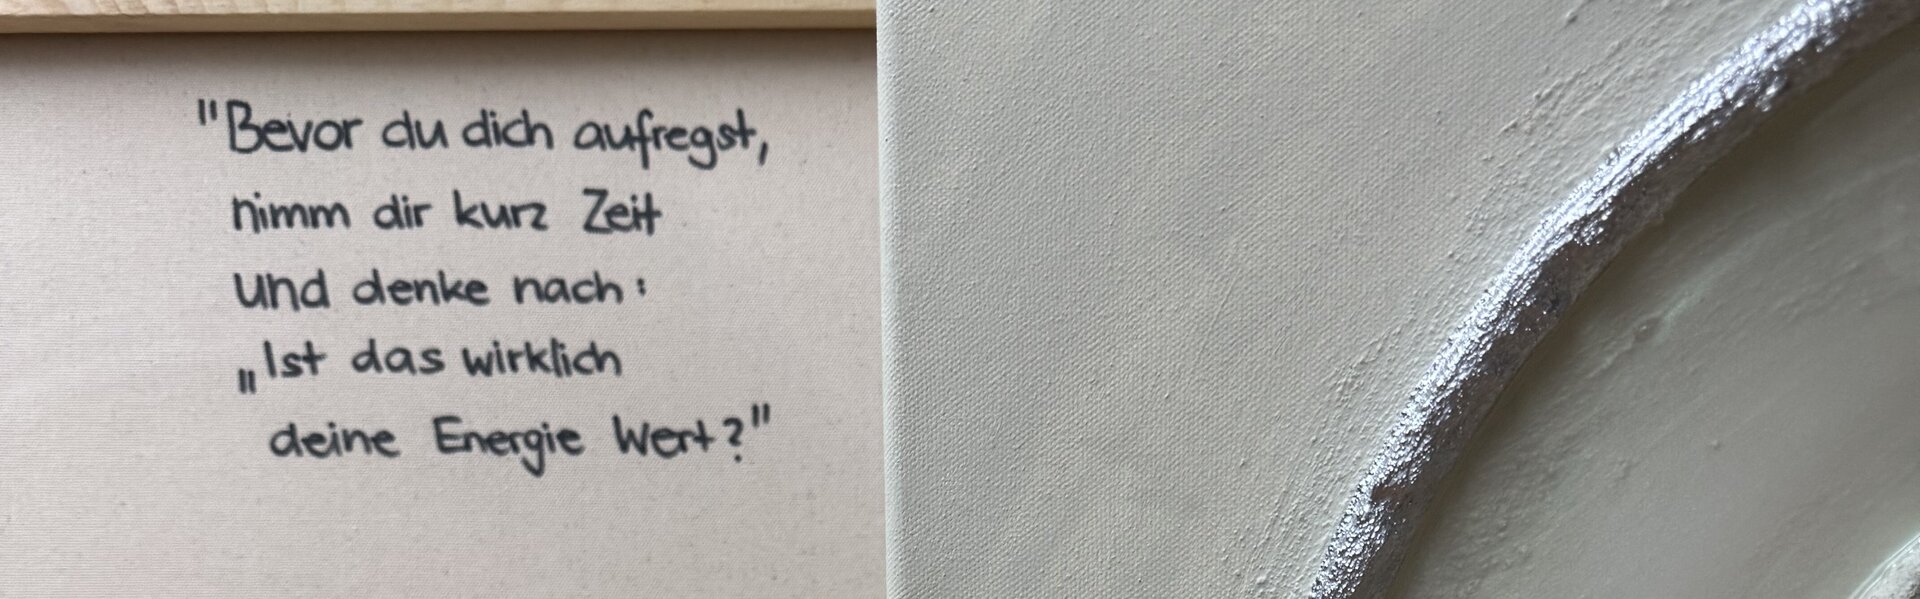 "Bevor du dich aufregst,
nimm dir kurz Zeit
und denke nach:
„Ist das wirklich
deine Energie Wert?"